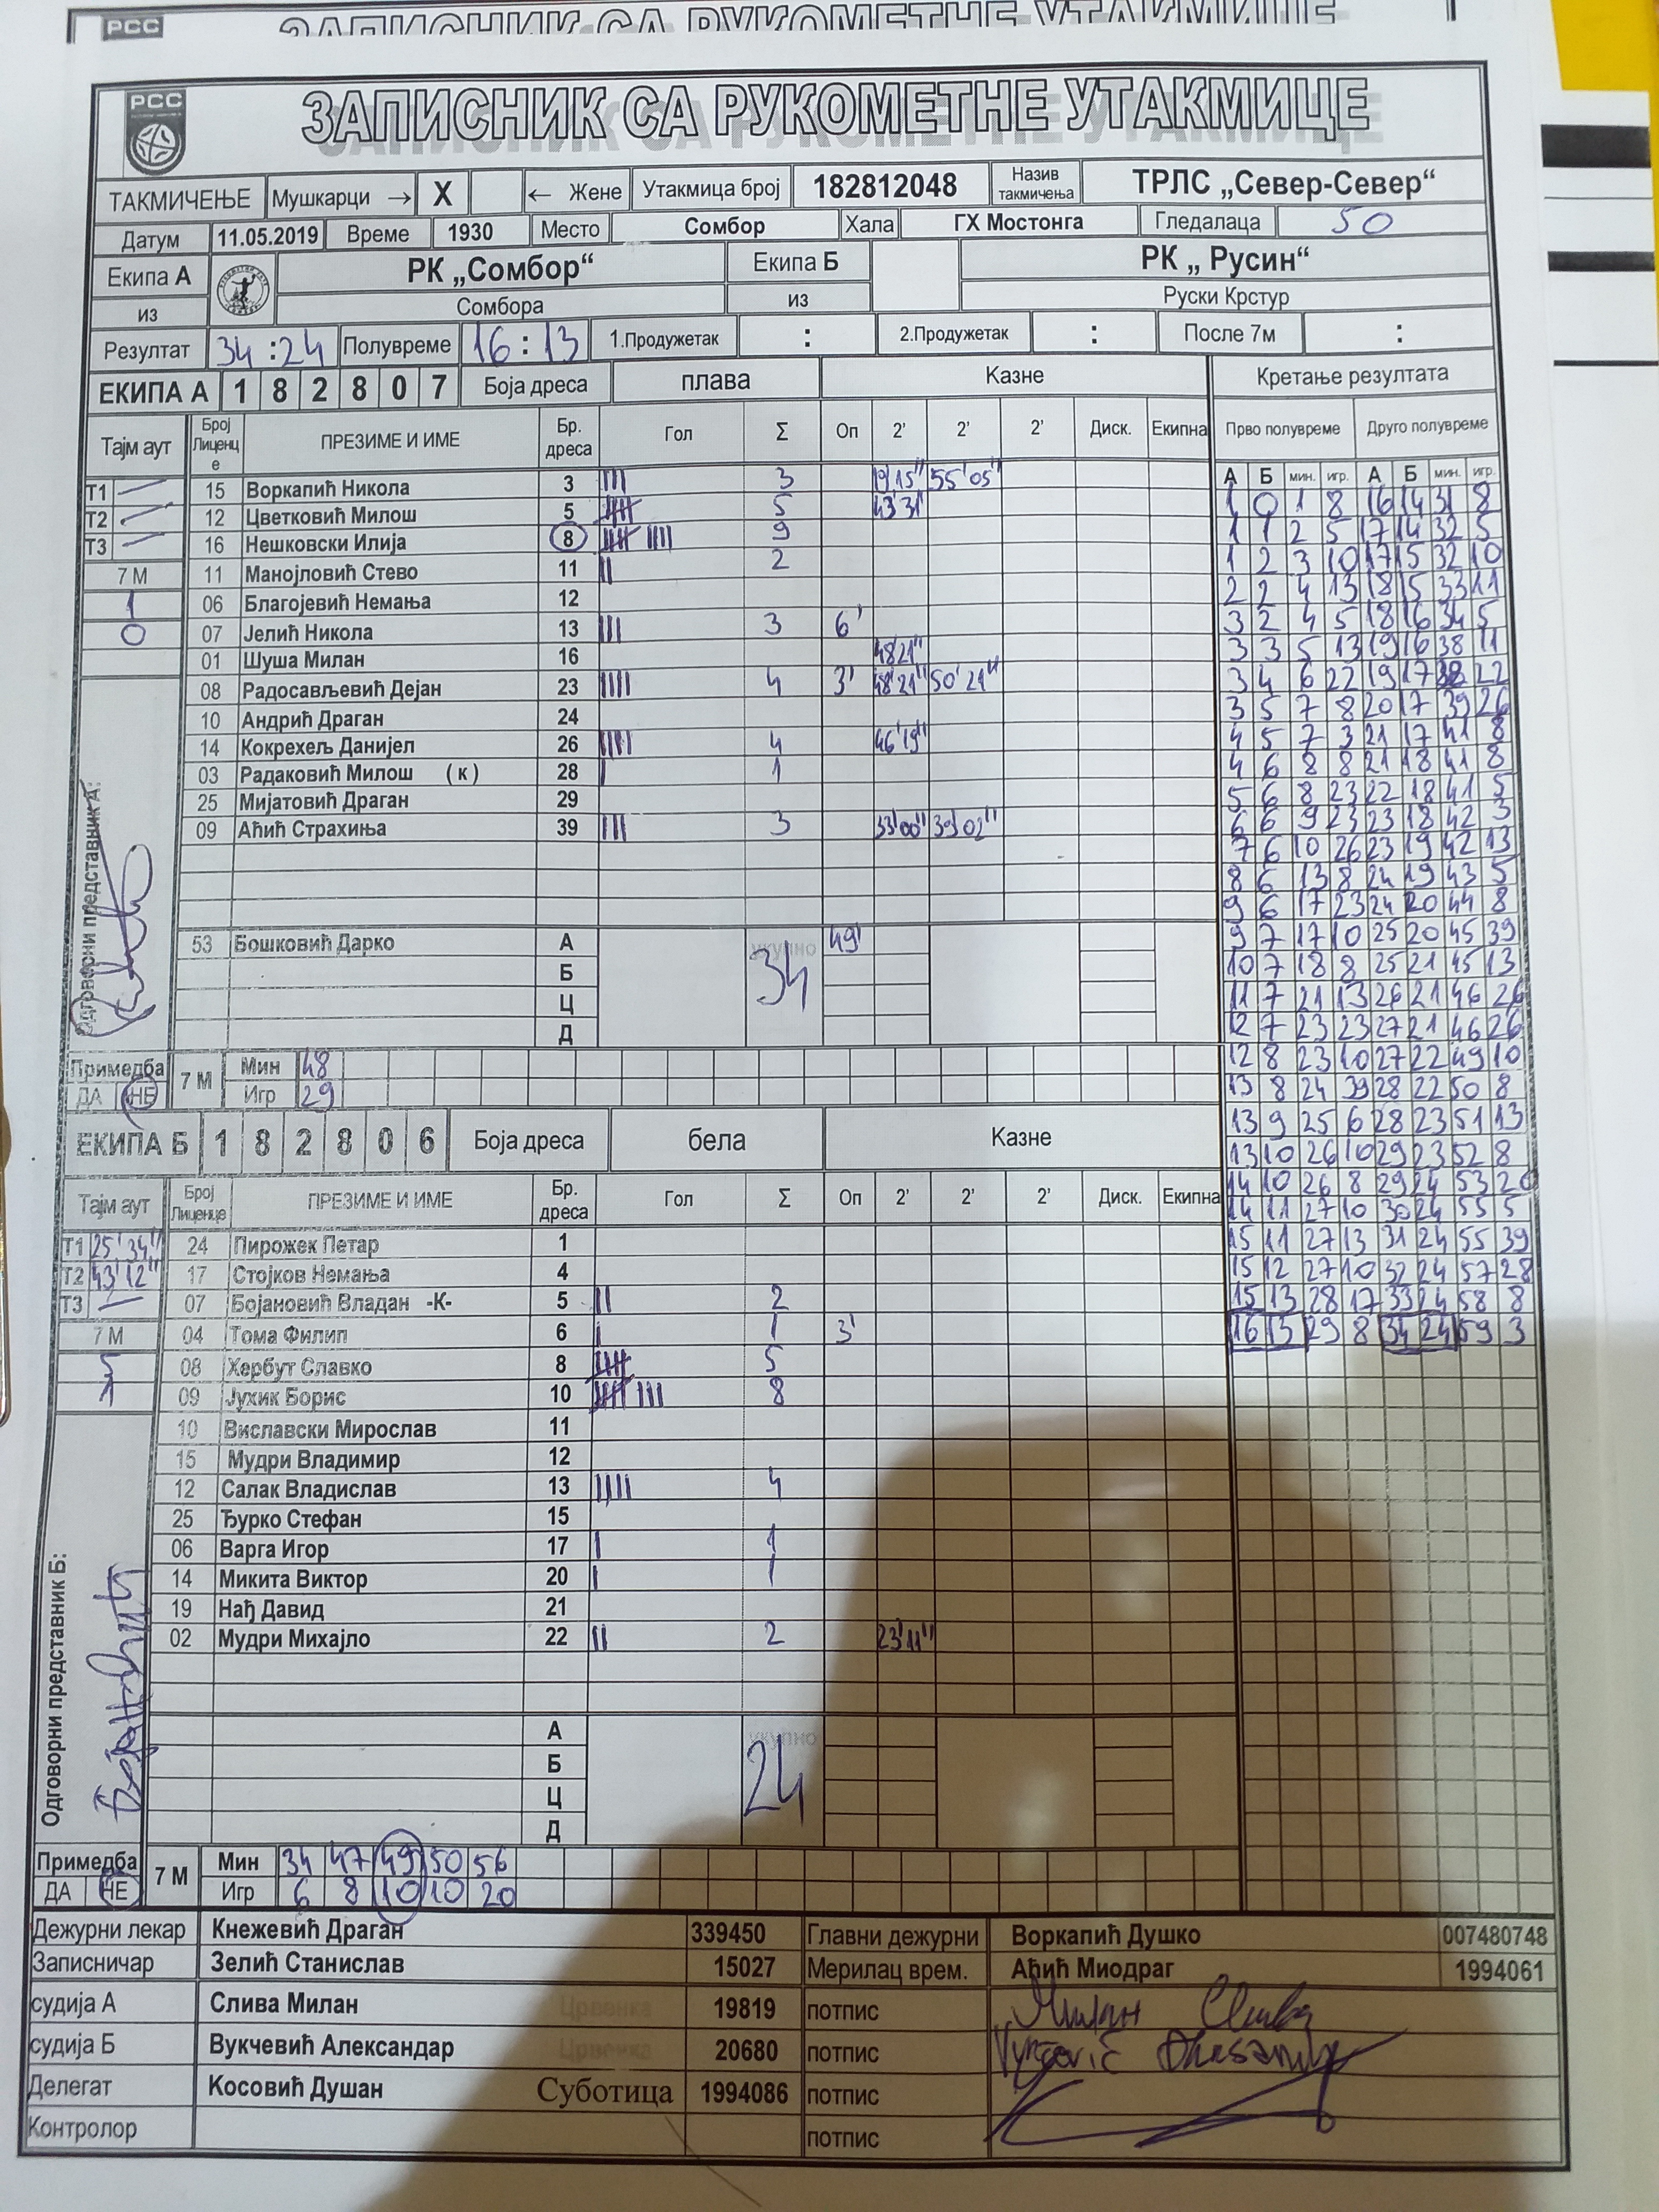 РСС
ЗАПИСНИК СА РУКОМЕТНЕ УТАКМИЦЕ
РСС
ЗАПИСНИК СА РУКОМЕТНЕ УТАКМИЦЕ
ТАКМИЧЕЊЕ Мушкарци → X ← Жене Утакмица број 182812048 Назив такмичења ТРЛС „Север-Север“
Датум 11.05.2019 Време 1930 Место Сомбор Хала ГХ Мостонга Гледалаца 50
Екипа А РК „Сомбор“ Екипа Б РК „ Русин“
из Сомбора из Руски Крстур
Резултат 34 : 24 Полувреме 16 : 13 1.Продужетак : 2.Продужетак : После 7м :
ЕКИПА А 1 8 2 8 0 7 Боја дреса плава Казне Кретање резултата
Тајм аут Број Лиценце ПРЕЗИМЕ И ИМЕ Бр. дреса Гол Σ Оп 2' 2' 2' Диск. Екипна Прво полувреме Друго полувреме
А Б мин. игр. А Б мин. игр.
Т1 — 15 Воркапић Никола 3 III 3 19'15" 55'05"
Т2 — 12 Цветковић Милош 5 IIIII 5 43'31"
Т3 — 16 Нешковски Илија 8 IIIII IIII 9
7 М 11 Манојловић Стево 11 II 2
1 06 Благојевић Немања 12
0 07 Јелић Никола 13 III 3 6'
01 Шуша Милан 16 48'21"
08 Радосављевић Дејан 23 IIII 4 3' 48'21" 50'21"
10 Андрић Драган 24
14 Кокрехељ Данијел 26 IIII 4 46'19"
03 Радаковић Милош (к) 28 I 1
25 Мијатовић Драган 29
09 Аћић Страхиња 39 III 3 33'00" 39'02"
53 Бошковић Дарко А укупно 34 49'
Б
Ц
Д
Одговорни представник А:
Примедба ДА НЕ 7 М Мин 48
Игр 29
1 0 1 8 16 14 31 8
1 1 2 5 17 14 32 5
1 2 3 10 17 15 32 10
2 2 4 13 18 15 33 11
3 2 4 5 18 16 34 5
3 3 5 13 19 16 38 11
3 4 6 22 19 17 38 22
3 5 7 8 20 17 39 26
4 5 7 3 21 17 41 8
4 6 8 8 21 18 41 8
5 6 8 23 22 18 41 5
6 6 9 23 23 18 42 3
7 6 10 26 23 19 42 13
8 6 13 8 24 19 43 5
9 6 17 23 24 20 44 8
9 7 17 10 25 20 45 39
10 7 18 8 25 21 45 13
11 7 21 13 26 21 46 26
12 7 23 23 27 21 46 26
12 8 23 10 27 22 49 10
13 8 24 39 28 22 50 8
13 9 25 6 28 23 51 13
13 10 26 10 29 23 52 8
14 10 26 8 29 24 53 20
14 11 27 10 30 24 55 5
15 11 27 13 31 24 55 39
15 12 27 10 32 24 57 28
15 13 28 17 33 24 58 8
16 13 29 8 34 24 59 3
ЕКИПА Б 1 8 2 8 0 6 Боја дреса бела Казне
Тајм аут Број Лиценце ПРЕЗИМЕ И ИМЕ Бр. дреса Гол Σ Оп 2' 2' 2' Диск. Екипна
Т1 25'34" 24 Пирожек Петар 1
Т2 43'12" 17 Стојков Немања 4
Т3 — 07 Бојановић Владан -К- 5 II 2
7 М 04 Тома Филип 6 I 1 3'
5 08 Хербут Славко 8 IIIII 5
1 09 Јухик Борис 10 IIIII III 8
10 Виславски Мирослав 11
15 Мудри Владимир 12
12 Салак Владислав 13 IIII 4
25 Ђурко Стефан 15
06 Варга Игор 17 I 1
14 Микита Виктор 20 I 1
19 Нађ Давид 21
02 Мудри Михајло 22 II 2 23'11"
А укупно 24
Б
Ц
Д
Одговорни представник Б:
Примедба ДА НЕ 7 М Мин 34 47 49 50 56
Игр 6 8 10 10 20
Дежурни лекар Кнежевић Драган 339450 Главни дежурни Воркапић Душко 007480748
Записничар Зелић Станислав 15027 Мерилац врем. Аћић Миодраг 1994061
судија А Слива Милан Црвенка 19819 потпис Милан Слива
судија Б Вукчевић Александар Црвенка 20680 потпис
Делегат Косовић Душан Суботица 1994086 потпис
Контролор потпис